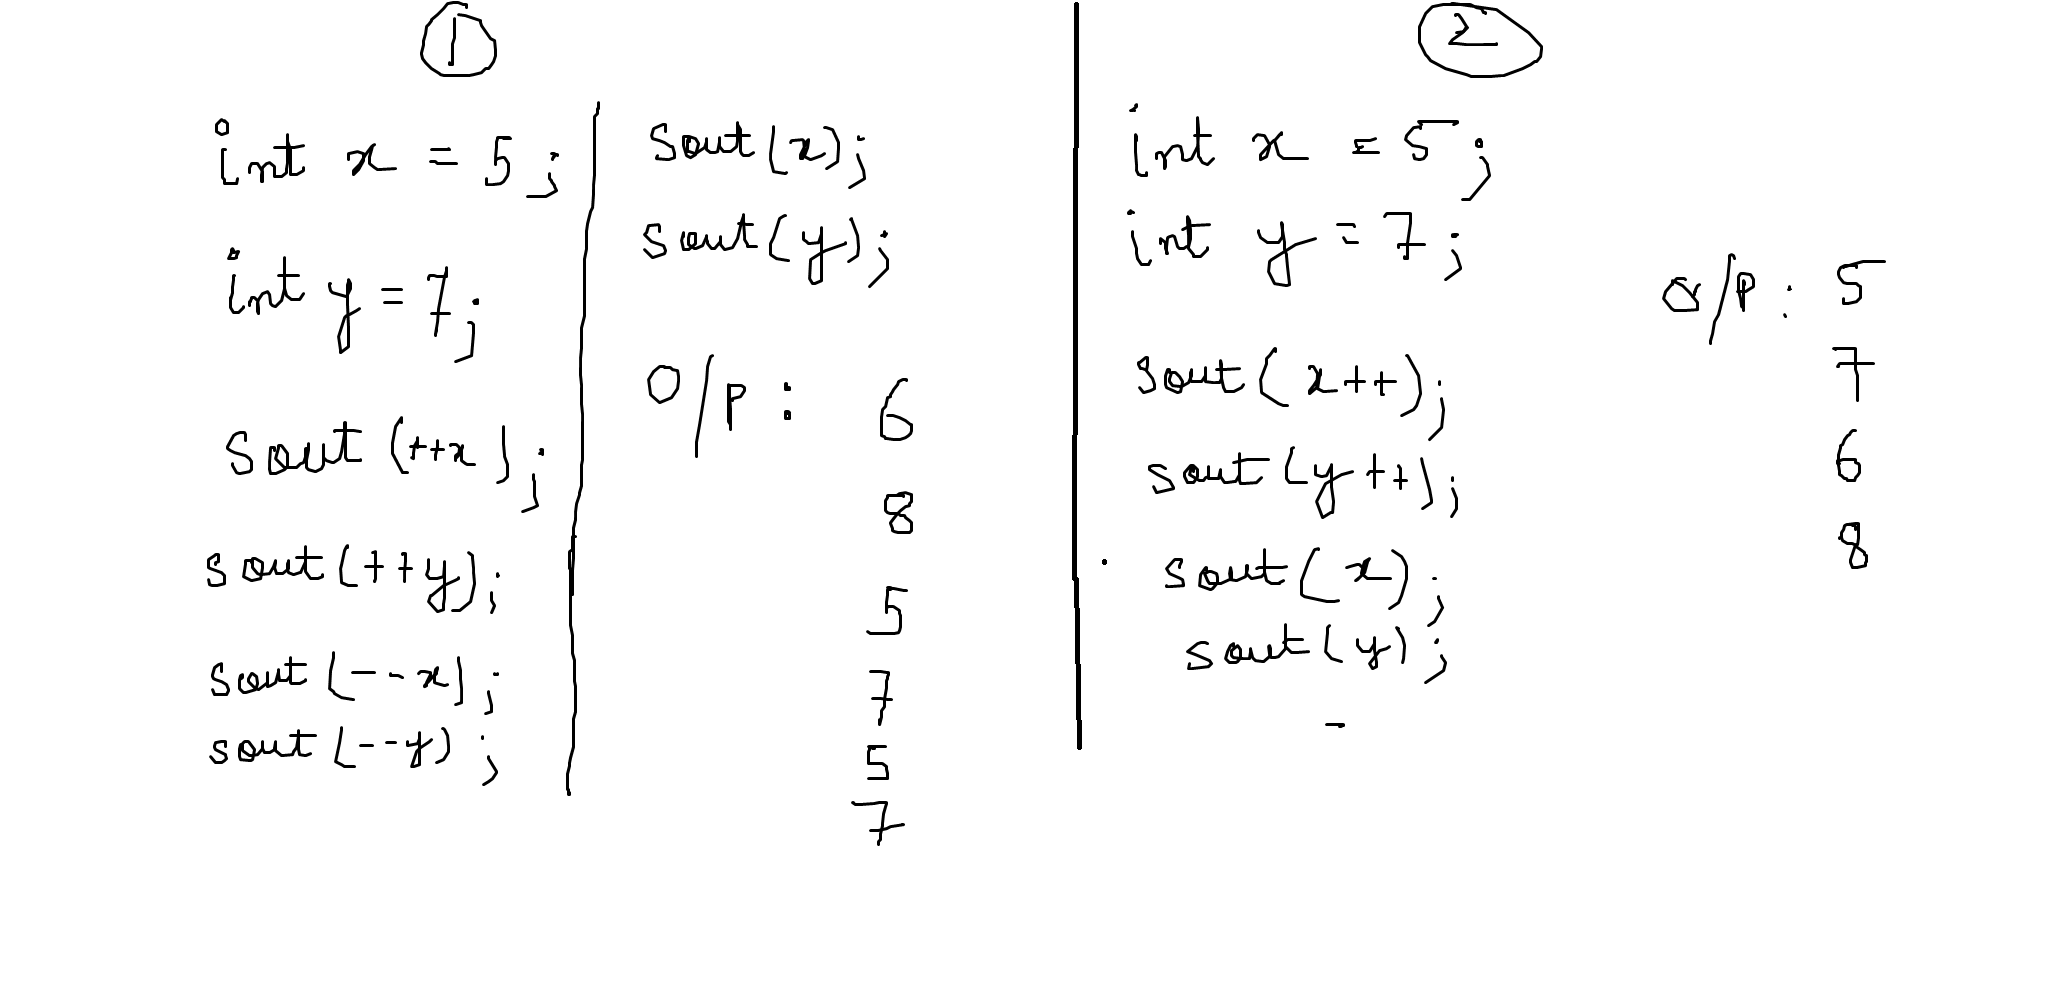 1
int x = 5;
int y = 7;
sout (++x);
sout (++y);
sout (--x);
sout (--y);
sout (x);
sout (y);
O/P : 6
8
5
7
5
7
2
int x = 5;
int y = 7;
sout (x++);
sout (y++);
sout (x);
sout (y);
O/P : 5
7
6
8